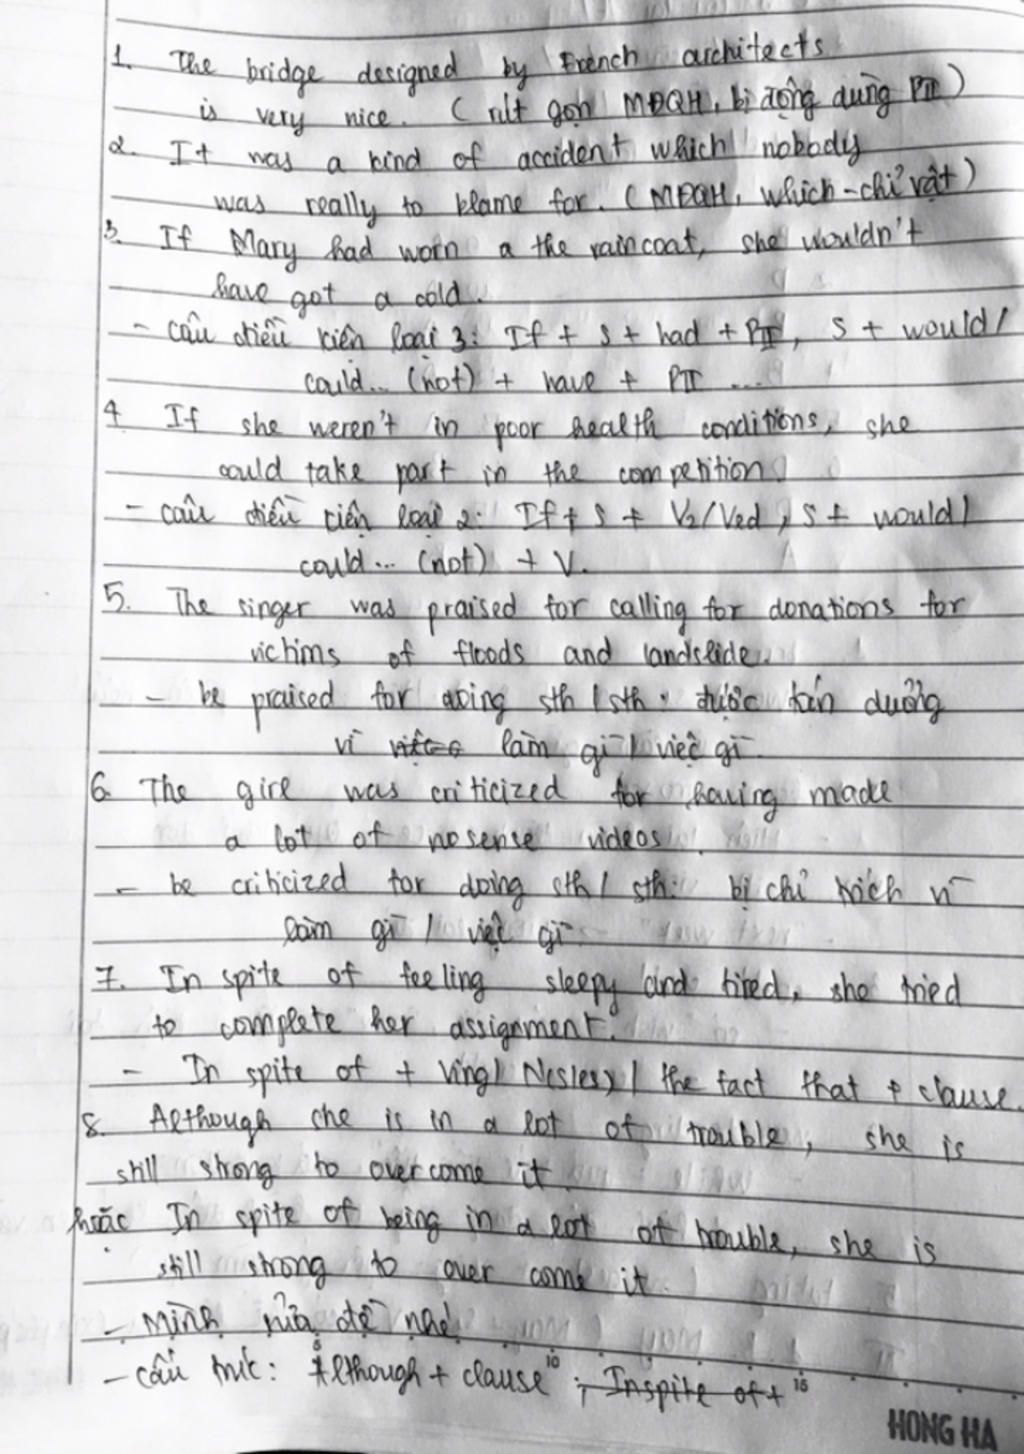 1. The bridge designed by French architects
is very nice. (rút gọn MĐQH, bị động dùng PII)
2. It was a kind of accident which nobody
was really to blame for. (MĐQH, which - chỉ vật)
3. If Mary had worn a the raincoat, she wouldn't
have got a cold.
- câu điều kiện loại 3: If + S + had + PII, S + would/
could... (not) + have + PII ...
4 If she weren't in poor health conditions, she
could take part in the competition
- câu điều kiện loại 2: If + S + V2/Ved, S + would/
could... (not) + V.
5. The singer was praised for calling for donations for
victims of floods and landslide.
- be praised for doing sth / sth: được tán dương
vì việc làm gì / việc gì
6 The girl was criticized for having made
a lot of nosense videos.
- be criticized for doing sth / sth: bị chỉ trích vì
làm gì / việc gì
7. In spite of feeling sleepy and tired, she tried
to complete her assignment.
- In spite of + Ving / N(s/es) / the fact that + clause.
8. Although she is in a lot of trouble, she is
still strong to overcome it.
hoặc In spite of being in a lot of trouble, she is
still strong to over come it.
- Mình sửa đề nhé!
- cấu trúc: Although + clause ; Inspite of +
5 10 15
HONG HA